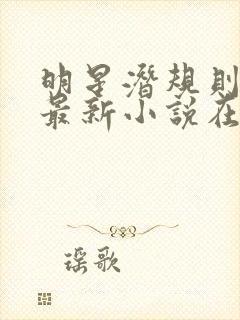 明星潛規則
最新小說在
瑶歌